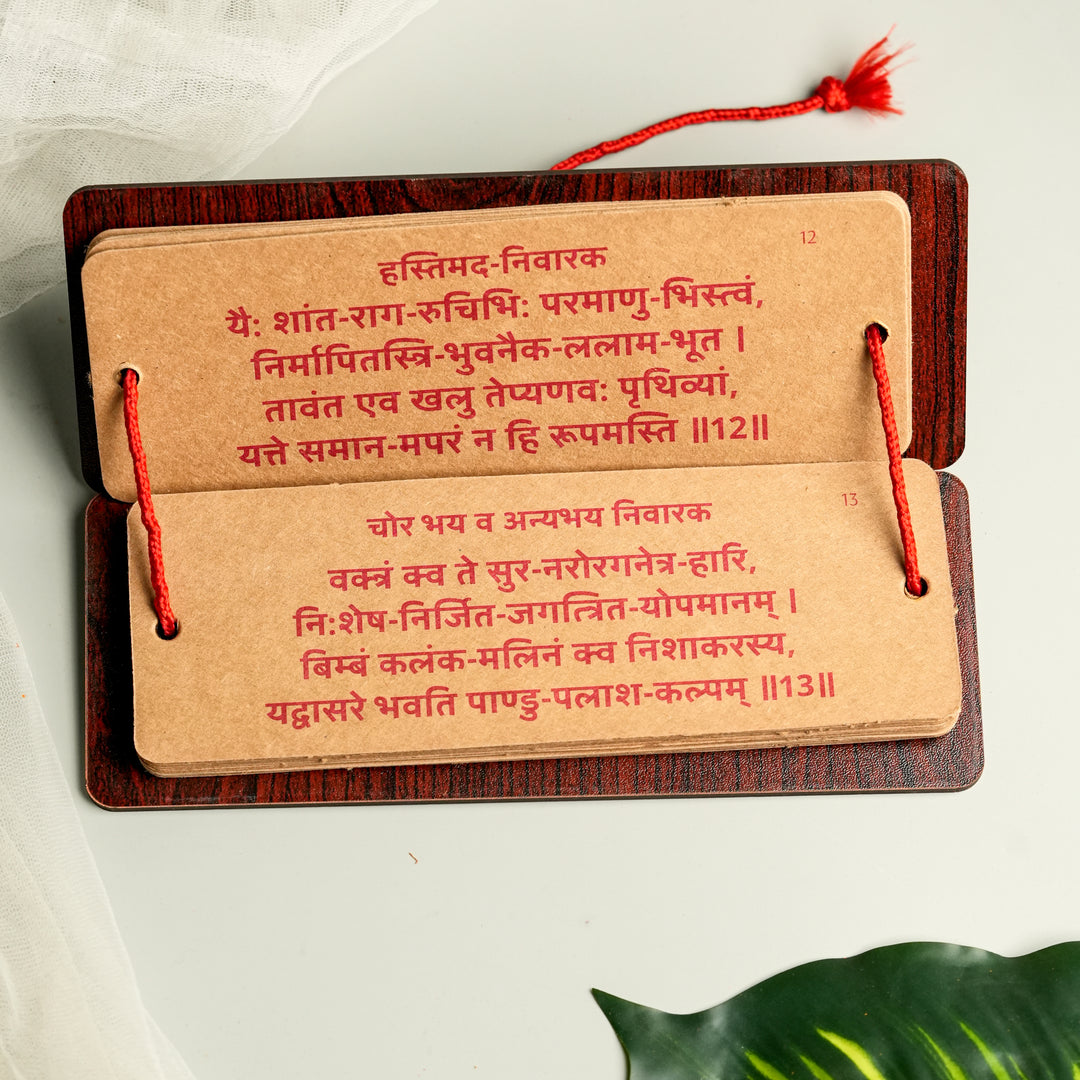 12
हस्तिमद-निवारक
यै: शांत-राग-रुचिभि: परमाणु-भिस्त्वं,
निर्मापितस्त्रि-भुवनैक-ललाम-भूत ।
तावंत एव खलु तेप्यणव: पृथिव्यां,
यत्ते समान-मपरं न हि रूपमस्ति ॥12॥
13
चोर भय व अन्यभय निवारक
वक्त्रं क्व ते सुर-नरोरगनेत्र-हारि,
नि:शेष-निर्जित-जगत्त्रित-योपमानम् ।
बिम्बं कलंक-मलिनं क्व निशाकरस्य,
यद्वासरे भवति पाण्डु-पलाश-कल्पम् ॥13॥